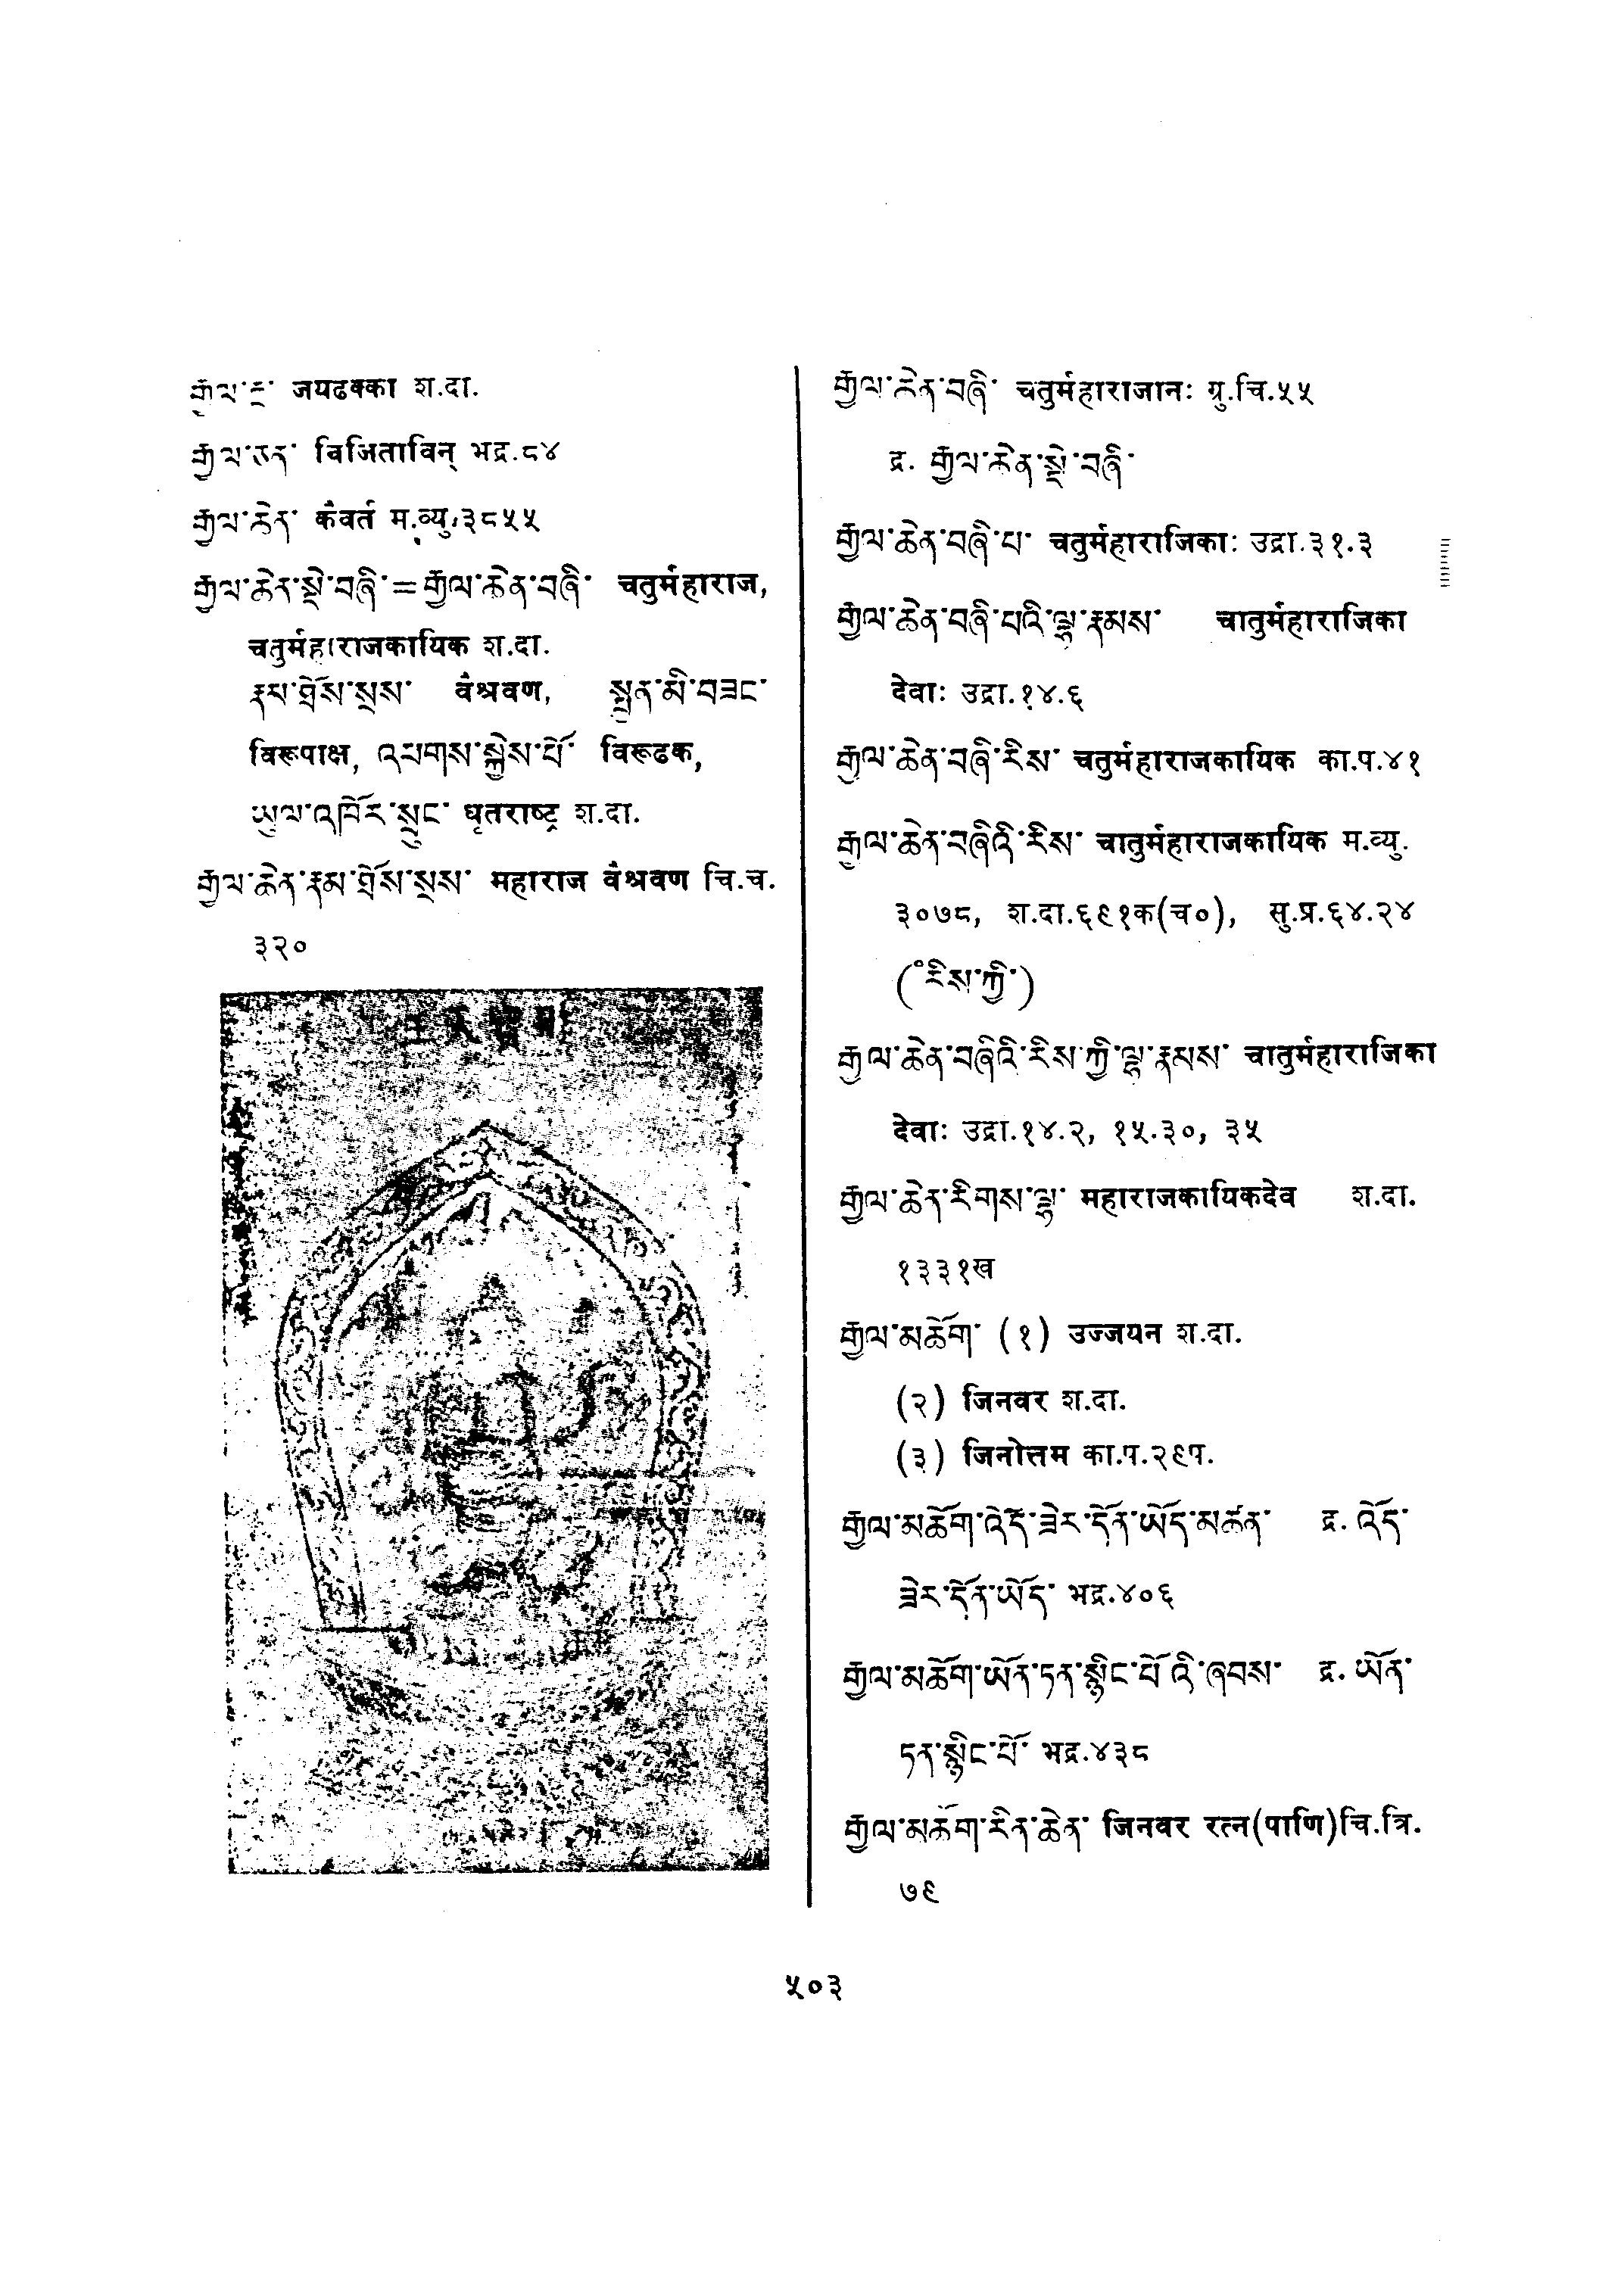 རྒྱལ་རྔ་ जयढक्का श.दा.
རྒྱལ་ཅན་ विजिताविन् भद्र.८४
རྒྱལ་ཆེན་ कैवर्त म.व्यु.३८५५
རྒྱལ་ཆེན་སྡེ་བཞི་=རྒྱལ་ཆེན་བཞི་ चतुर्महाराज,
चतुर्महाराजकायिक श.दा.
རྣམ་ཐོས་སྲས་ वैश्रवण, སྤྱན་མི་བཟང་
विरूपाक्ष, འཕགས་སྐྱེས་པོ་ विरूढक,
ཡུལ་འཁོར་སྲུང་ धृतराष्ट्र श.दा.
རྒྱལ་ཆེན་རྣམ་ཐོས་སྲས་ महाराज वैश्रवण चि.च.
३२०
རྒྱལ་ཆེན་བཞི་ चतुर्महाराजानः ग्रु.चि.५५
द्र. རྒྱལ་ཆེན་སྡེ་བཞི་
རྒྱལ་ཆེན་བཞི་པ་ चतुर्महाराजिकाः उद्रा.३१.३
རྒྱལ་ཆེན་བཞི་པའི་ལྷ་རྣམས་ चातुर्महाराजिका
देवाः उद्रा.१४.६
རྒྱལ་ཆེན་བཞི་རིས་ चतुर्महाराजकायिक का.प.४१
རྒྱལ་ཆེན་བཞིའི་རིས་ चातुर्महाराजकायिक म.व्यु.
३०७८, श.दा.६९१क(च०), सु.प्र.६४.२४
(°རིས་ཀྱི་)
རྒྱལ་ཆེན་བཞིའི་རིས་ཀྱི་ལྷ་རྣམས་ चातुर्महाराजिका
देवाः उद्रा.१४.२, १५.३०, ३५
རྒྱལ་ཆེན་རིགས་ལྷ་ महाराजकायिकदेव श.दा.
१३३१ख
རྒྱལ་མཆོག་ (१) उज्जयन श.दा.
(२) जिनवर श.दा.
(३) जिनोत्तम का.प.२९प.
རྒྱལ་མཆོག་འོད་ཟེར་དོན་ཡོད་མཚན་ द्र. འོད་
ཟེར་དོན་ཡོད་ भद्र.४०६
རྒྱལ་མཆོག་ཡོན་ཏན་སྙིང་པོའི་ཞབས་ द्र. ཡོན་
ཏན་སྙིང་པོ་ भद्र.४३८
རྒྱལ་མཆོག་རིན་ཆེན་ जिनवर रत्न(पाणि)चि.त्रि.
७९
५०३